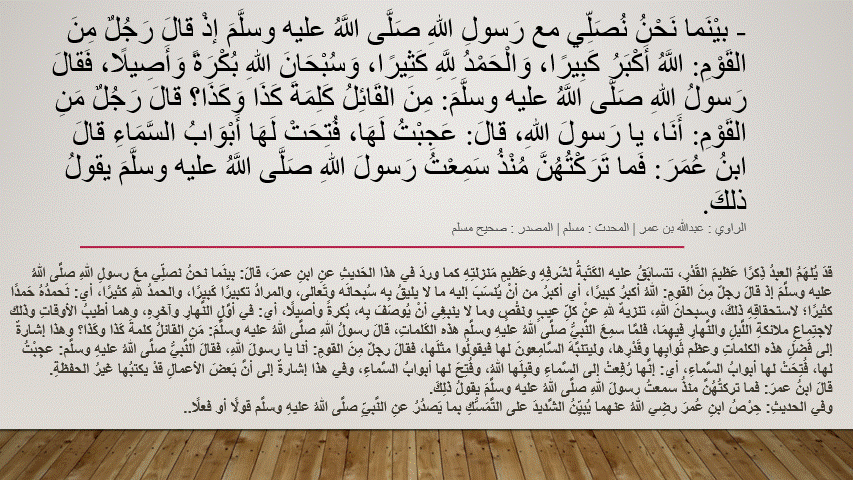 - بيْنَما نَحْنُ نُصَلِّي مع رَسولِ اللهِ صَلَّى اللَّهُ عليه وسلَّمَ إذْ قالَ رَجُلٌ مِنَ
القَوْمِ: اللَّهُ أَكْبَرُ كَبِيرًا، وَالْحَمْدُ لِلَّهِ كَثِيرًا، وَسُبْحَانَ اللهِ بُكْرَةً وَأَصِيلًا، فَقالَ
رَسولُ اللهِ صَلَّى اللَّهُ عليه وسلَّمَ: مِنَ القَائِلُ كَلِمَةَ كَذَا وَكَذَا؟ قالَ رَجُلٌ مَنِ
القَوْمِ: أَنَا، يا رَسولَ اللهِ، قالَ: عَجِبْتُ لَهَا، فُتِحَتْ لَهَا أَبْوَابُ السَّمَاءِ قالَ
ابنُ عُمَرَ: فَما تَرَكْتُهُنَّ مُنْذُ سَمِعْتُ رَسولَ اللهِ صَلَّى اللَّهُ عليه وسلَّمَ يقولُ
ذلكَ.
الراوي : عبدالله بن عمر | المحدث : مسلم | المصدر : صحيح مسلم
قدْ يُلهَمُ العبدُ ذِكرًا عَظيمَ القَدْرِ، تتسابَقُ عليه الكَتَبةُ لشَرفِهِ وعَظيمِ مَنزلتِهِ كما وردَ في هذا الحَديثِ عنِ ابنِ عمرَ، قالَ: بينَما نحنُ نصلِّي معَ رسولِ اللهِ صلَّى اللهُ
عليه وسلَّمَ إذْ قالَ رجلٌ مِنَ القومِ: اللهُ أكبرُ كبيرًا، أي أكبرُ من أنْ يُنسَبَ إليه ما لا يليقُ بِه سُبحانَه وتَعالى، والمرادُ تكبيرًا كَبيرًا، والحمدُ للهِ كثيرًا، أي: نَحمدُهُ حَمدًا
كثيرًا؛ لاستحقاقِهِ ذلكَ، وسبحان اللهِ، تنزيهٌ للهِ عنْ كلِّ عيبٍ ونقْصٍ وما لا ينبغِي أنْ يُوصَفَ بِه، بُكرةً وأصيلًا، أي: في أوَّلِ النَّهارِ وآخرِهِ، وهما أطيبُ الأوقاتِ وذلك
لاجتِماعِ ملائكةِ اللَّيلِ والنَّهارِ فيهِمَا، فلمَّا سمِعَ النَّبيُّ صلَّى اللهُ عليه وسلَّم هذه الكَلماتِ، قالَ رسولُ اللهِ صلَّى اللهُ عليه وسلَّمَ: مَنِ القائلُ كلمةَ كذَا وكذَا؟ وهذا إشارةٌ
إلى فَضْلِ هذه الكلماتِ وعظَمِ ثَوابِها وقَدْرِها، وليتنبَّهَ السَّامِعونَ لها فيقولُوا مثْلَها، فقالَ رجلٌ مِنَ القومِ: أنا يا رسولَ اللهِ، فقالَ النَّبيُّ صلَّى اللهُ عليهِ وسلَّمَ: عجِبْتُ
لها، فُتِحَتْ لها أبوابُ السَّماءِ، أي: إنَّها رُفِعتْ إلى السَّماءِ وقَبِلَها اللهُ، وفُتِحَ لها أبوابُ السَّماءِ، وفي هذا إشارةٌ إلى أنَّ بَعضَ الأعمالِ قدْ يكتبُها غيرُ الحفظةِ.
قالَ ابنُ عمرَ: فما تركتُهُنَّ منذُ سمعتُ رسولَ اللهِ صلَّى اللهُ عليه وسلَّمَ يقولُ ذلكَ.
وفي الحديثِ: حِرْصُ ابنِ عُمرَ رضِي اللهُ عنهما يُبيِّنُ الشَّديدَ على التَّمَسُّكِ بما يَصدُرُ عنِ النَّبيِّ صلَّى اللهُ عليهِ وسلَّم قولًا أو فعلًا..